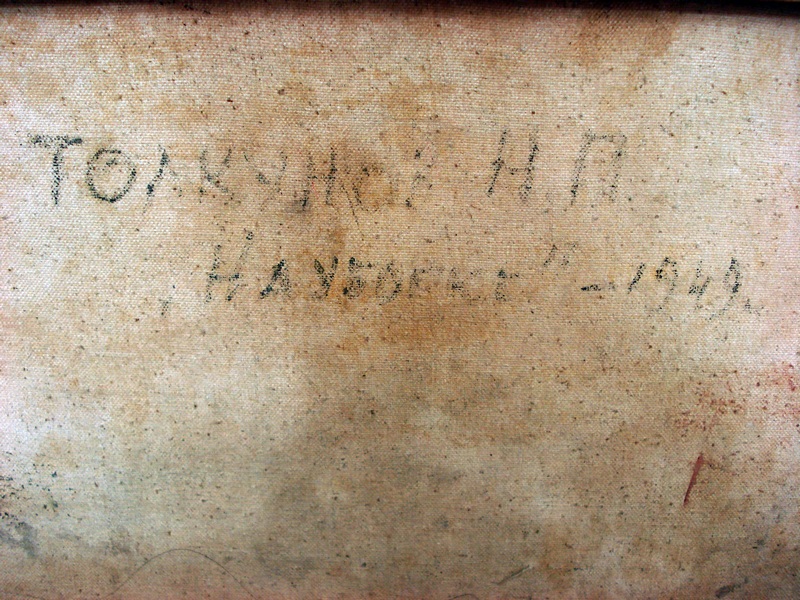 ТОЛКУНОВ Н.П.
„НА УБОРКЕ" – 1949.